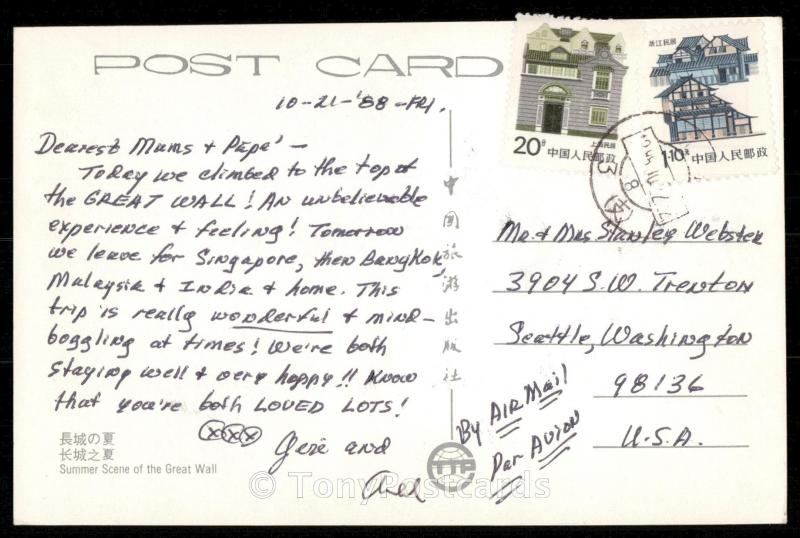 POST CARD
10-21-'88-FRI.
Dearest Mums & Papa' —
Today we climbed to the top of
the GREAT WALL! An unbelievable
experience & feeling! Tomorrow
we leave for Singapore, then Bangkok,
Malaysia & India & home. This
trip is really wonderful & mind-
boggling at times! We're both
staying well & very happy!! Know
that you're both LOVED LOTS!
xxx
and
長城の夏
长城之夏
Summer Scene of the Great Wall
中国旅游出版社
TTP
20分
上海民居
中国人民邮政
浙江民居
1.10元
中国人民邮政
Mr. & Mrs. Stanley Webster
3904 S.W. Trenton
Seattle, Washington
98136
U.S.A.
By AIR MAIL
Par AVION
© TonyPostcards